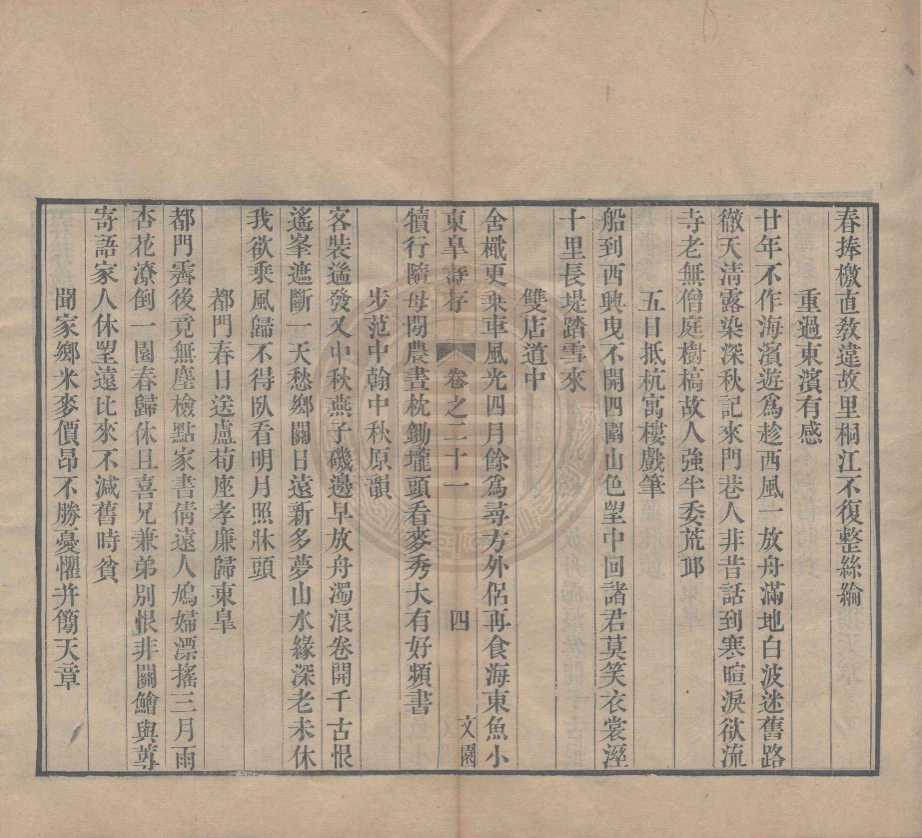 春捧檄直教違故里桐江不復整絲綸
重過東濱有感
廿年不作海濱遊爲趁西風一放舟滿地白波迷舊路
徹天清露染深秋記來門巷人非昔話到寒暄淚欲流
寺老無僧庭樹槁故人強半委荒邱
五日抵杭寓樓戲筆
船到西興曳不開四圍山色望中回諸君莫笑衣裳溼
十里長堤踏雪來
雙店道中
舍檝更乘車風光四月餘爲尋方外侶再食海東魚小
東皐詩存 卷之二十一 四 文園
犢行隨母閒農晝枕鋤壠頭看麥秀大有好頻書
步范中翰中秋原韻
客裝遄發又中秋燕子磯邊早放舟濁浪卷開千古恨
遙峯遮斷一天愁鄉關日遠新多夢山水緣深老未休
我欲乘風歸不得臥看明月照牀頭
都門春日送盧荀座孝廉歸東皐
都門霽後竟無塵檢點家書倩遠人鳩婦漂搖三月雨
杏花潦倒一園春歸休且喜兄兼弟別恨非關鱠與蓴
寄語家人休望遠比來不減舊時貧
聞家鄉米麥價昂不勝憂懼并簡天章